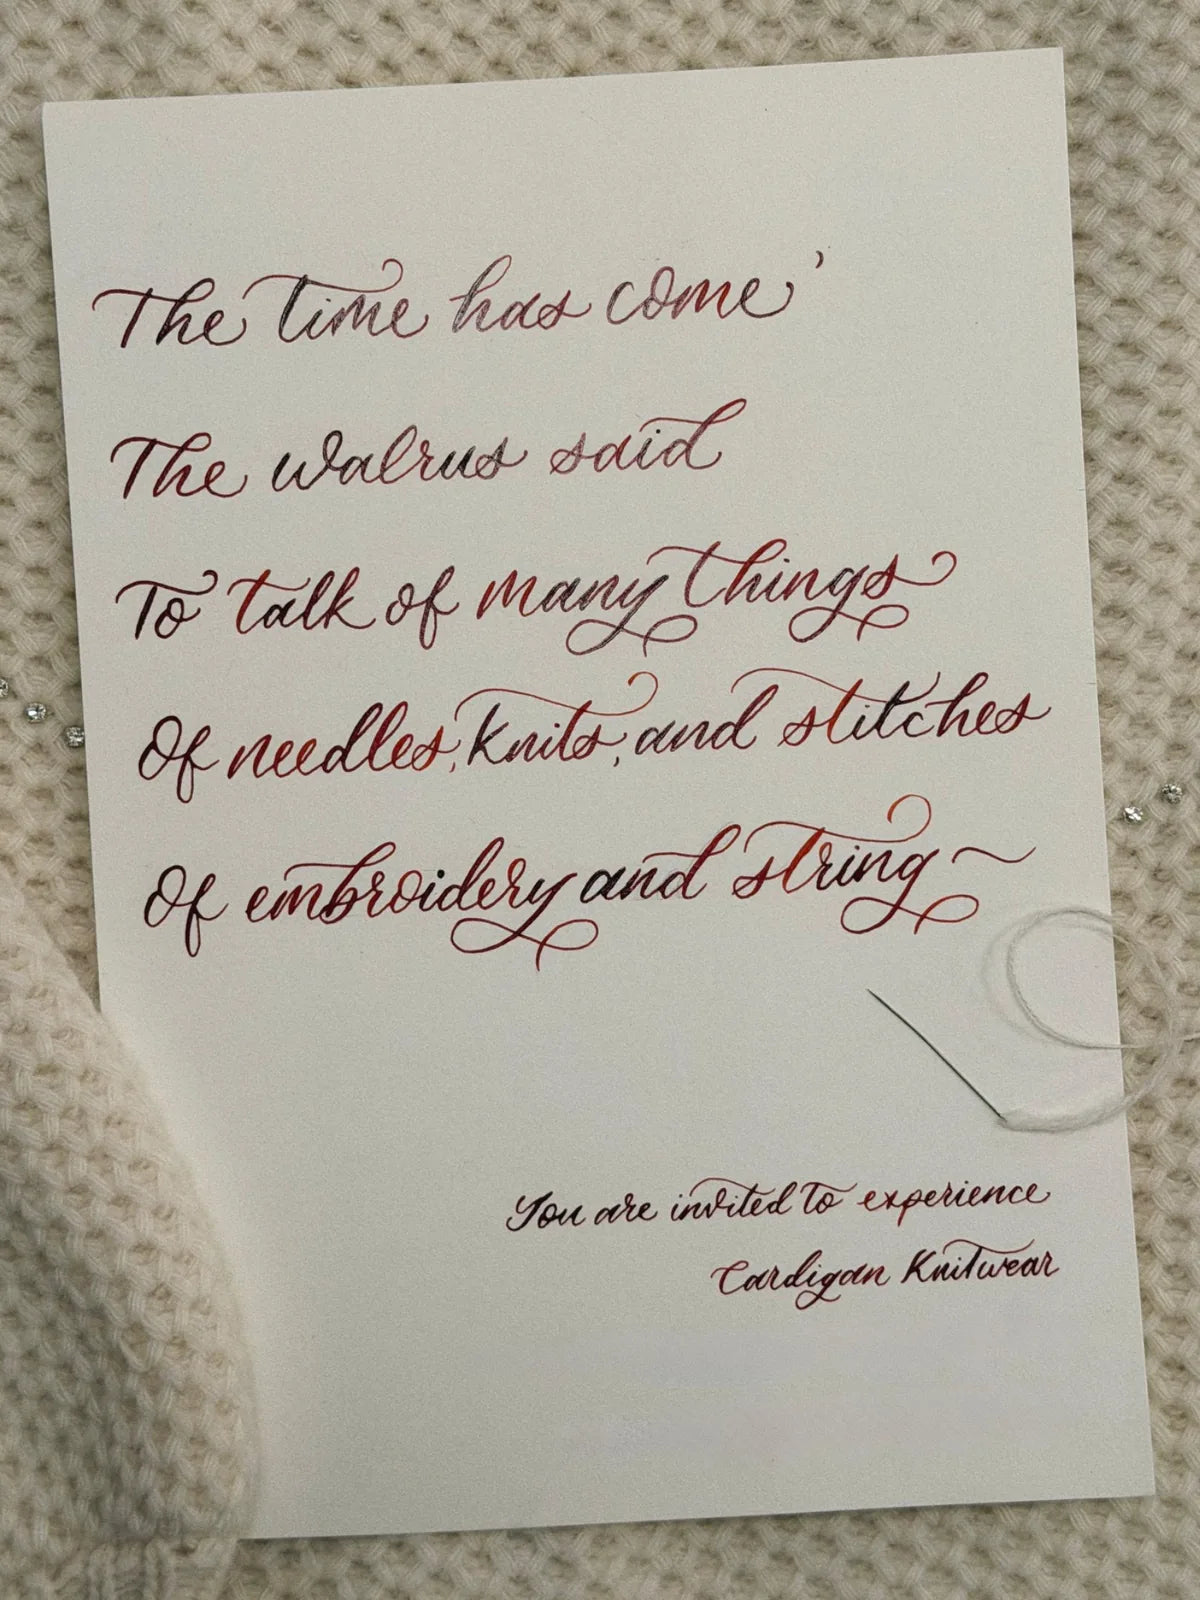 The time has come'
The walrus said
To talk of many things
Of needles, knits, and stitches
Of embroidery and string~
You are invited to experience
Cardigan Knitwear